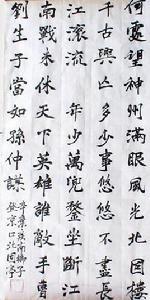 何處望神州滿眼風光北固樓
千古興亡多少事悠悠不盡長
江滾流年少萬兜鍪坐斷江
南戰未休天下英雄誰敵手曹
劉生子當如孫仲謀
辛棄疾南鄉子
登京口北固亭